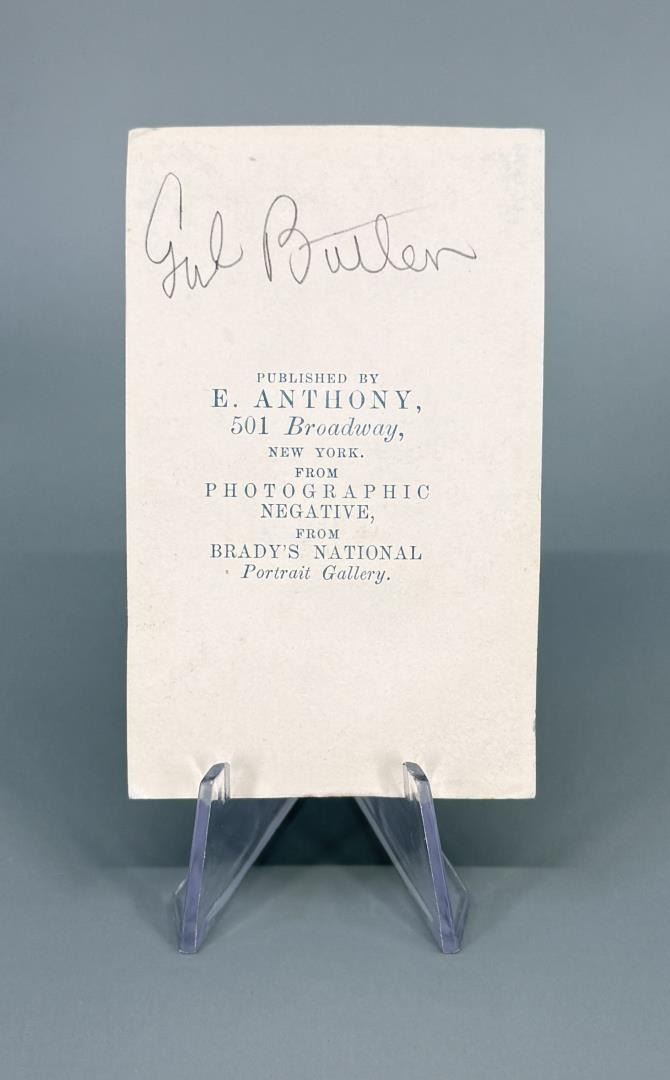 Gnl Butler
PUBLISHED BY
E. ANTHONY,
501 Broadway,
NEW YORK.
FROM
PHOTOGRAPHIC
NEGATIVE,
FROM
BRADY'S NATIONAL
Portrait Gallery.